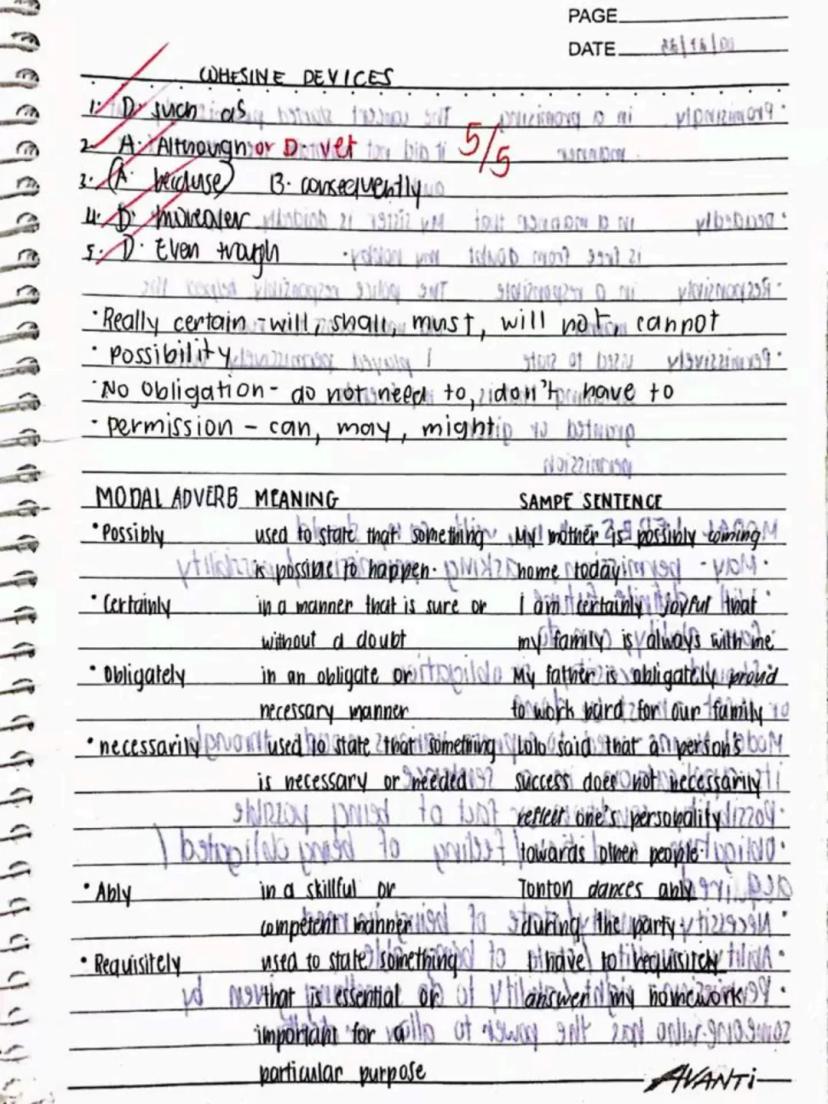 PAGE
DATE
COHESINE DEVICES
1. D. such as
2. A. Although or D. yet 5/5
3. (A. because) B. consequently
4. D. moreover
5. D. Even trough
• Really certain - will, shall, must, will not, cannot
• possibility
• No obligation - do not need to, don't have to
• permission - can, may, might
MODAL ADVERB MEANING SAMPE SENTENCE
• Possibly used to state that something My mother is possibly coming
is possible to happen. home today
• Certainly in a manner that is sure or I am certainly joyful that
without a doubt my family is always with me
• Obligately in an obligate or My father is obligately proud
necessary manner to work hard for our family
• necessarily used to state that something Lolo said that a person's
is necessary or needed success does not necessarily
reflect one's personality
towards other people.
• Ably in a skillful or Tonton dances ably
competent manner during the party
• Requisitely used to state something I have to requisitely
that is essential or answer my homework
important for a
particular purpose
AVANTi